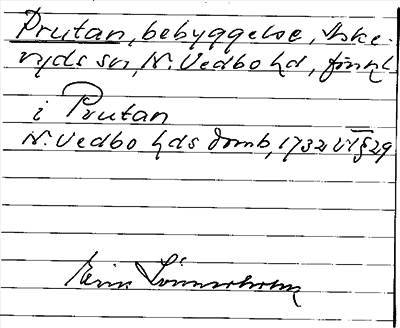 Prutan, bebyggelse, Aske-
ryds sn, N. Vedbo hd, Jönkl
i Prutan
N. Vedbo hds domb, 1732 VI § 29
Erik Linnerholm